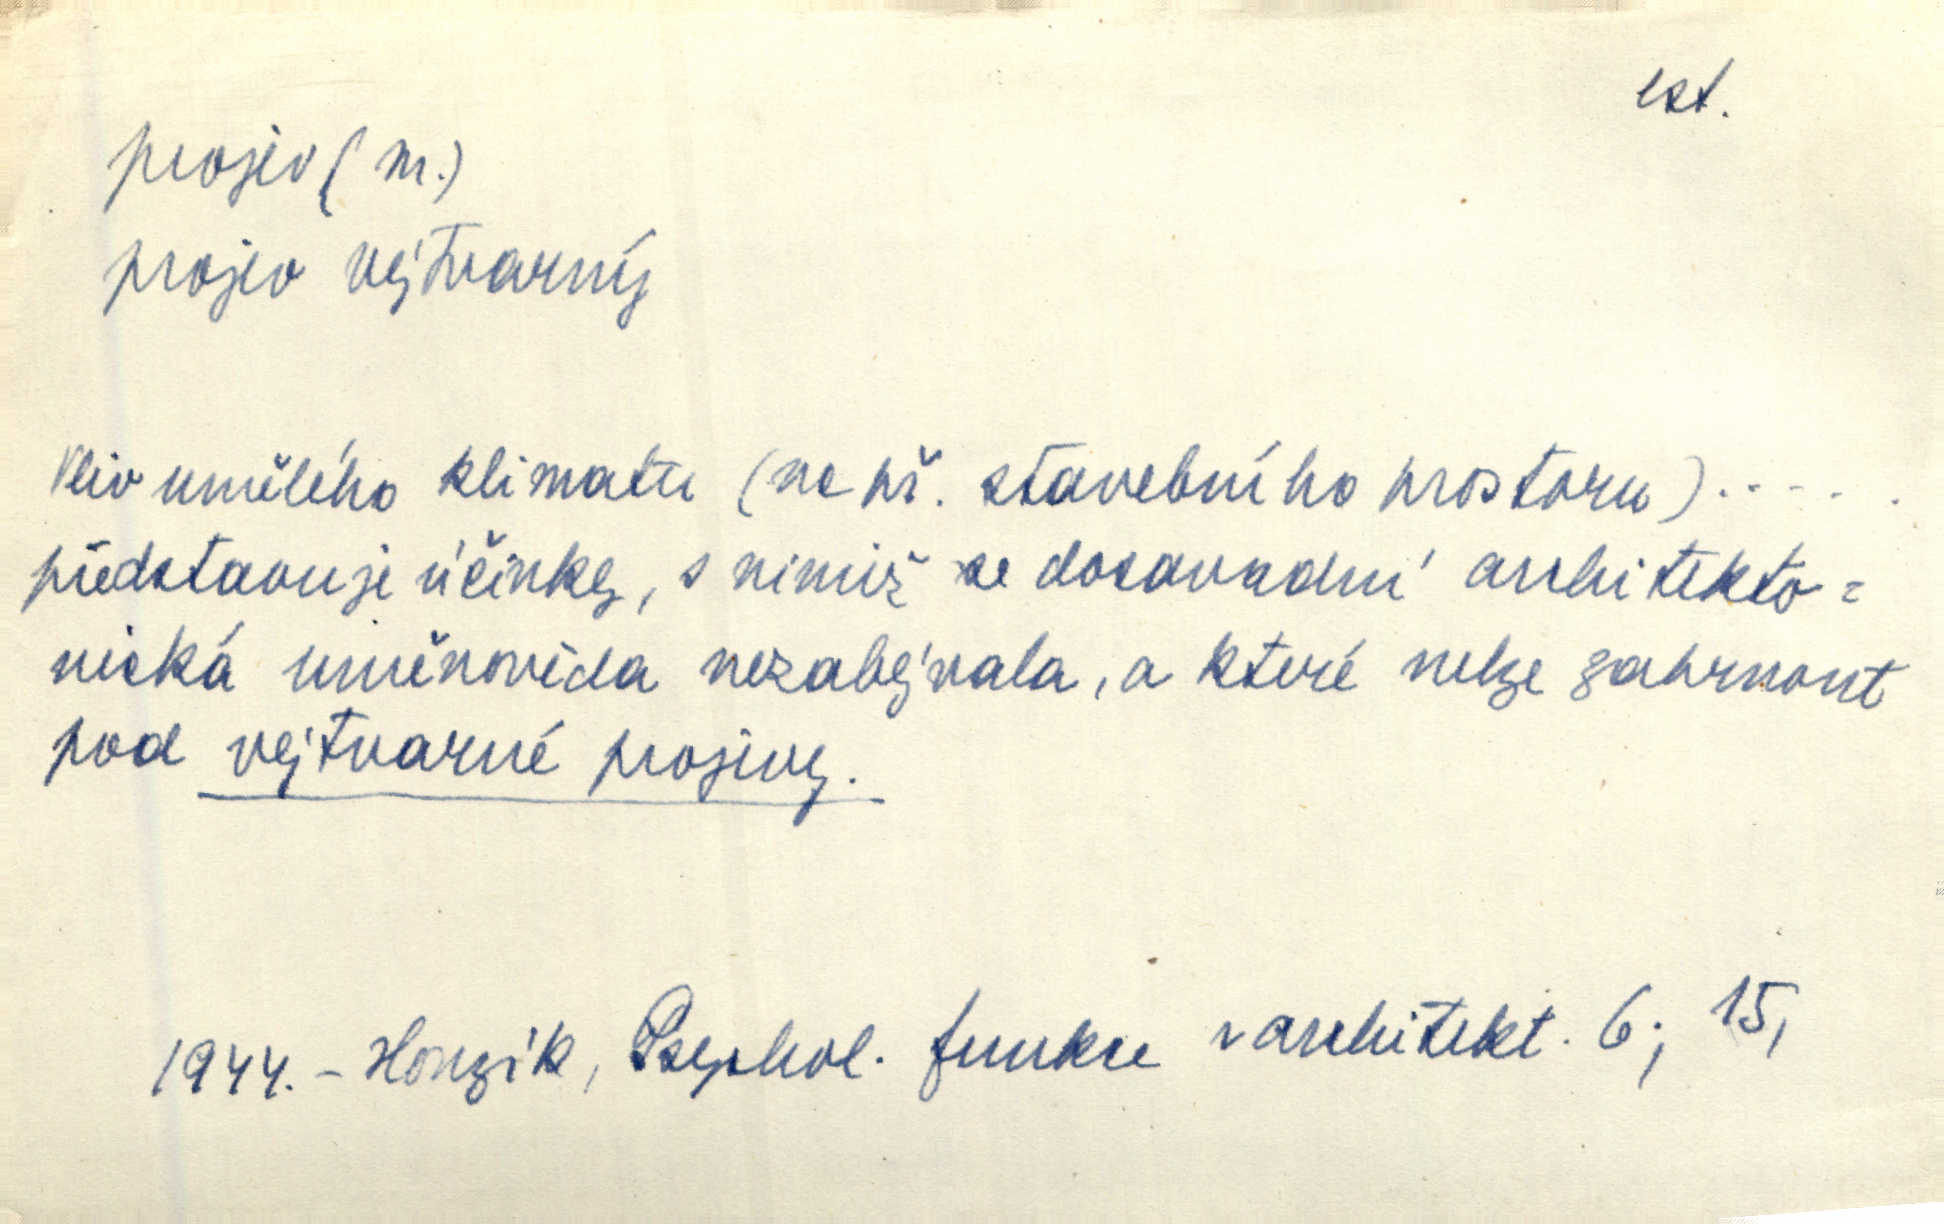 est.
projev (m.)
projev výtvarný
Vliv umělého klimatu (na př. stavebního prostoru).....
představuje účinky, s nimiž se dosavadní architekto=
nická uměnověda nezabývala, a které nelze zahrnout
pod výtvarné projevy.
1944. - Honzík, Psychol. funkce v architekt. 6; 15,